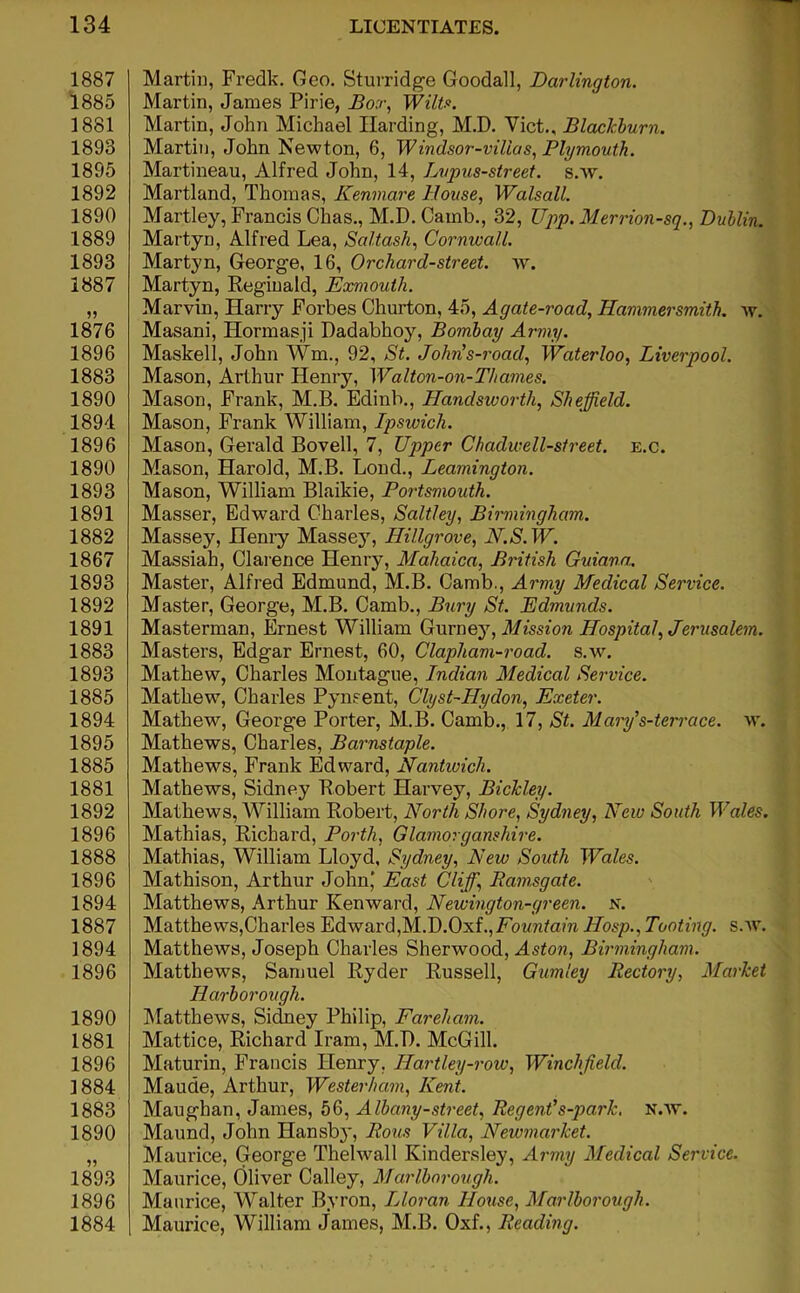 134 LICENTIATES.
1887 Martin, Fredk. Geo. Sturridge Goodall, Darlington.
1885 Martin, James Pirie, Box, Wilts.
1881 Martin, John Michael Harding, M.D. Vict., Blackburn.
1893 Martin, John Newton, 6, Windsor-villas, Plymouth.
1895 Martineau, Alfred John, 14, Lupus-street. s.w.
1892 Martland, Thomas, Kenmare House, Walsall.
1890 Martley, Francis Chas., M.D. Camb., 32, Upp. Merrion-sq., Dublin.
1889 Martyn, Alfred Lea, Saltash, Cornwall.
1893 Martyn, George, 16, Orchard-street. w.
1887 Martyn, Reginald, Exmouth.
„ Marvin, Harry Forbes Churton, 45, Agate-road, Hammersmith. w.
1876 Masani, Hormasji Dadabhoy, Bombay Army.
1896 Maskell, John Wm., 92, St. John's-road, Waterloo, Liverpool.
1883 Mason, Arthur Henry, Walton-on-Thames.
1890 Mason, Frank, M.B. Edinb., Handsworth, Sheffield.
1894 Mason, Frank William, Ipswich.
1896 Mason, Gerald Bovell, 7, Upper Chadwell-street. E.C.
1890 Mason, Harold, M.B. Lond., Leamington.
1893 Mason, William Blaikie, Portsmouth.
1891 Masser, Edward Charles, Saltley, Birmingham.
1882 Massey, Henry Massey, Hillgrove, N.S.W.
1867 Massiah, Clarence Henry, Mahaica, British Guiana.
1893 Master, Alfred Edmund, M.B. Camb., Army Medical Service.
1892 Master, George, M.B. Camb., Bury St. Edmunds.
1891 Masterman, Ernest William Gurney, Mission Hospital, Jerusalem.
1883 Masters, Edgar Ernest, 60, Clapham-road. s.w.
1893 Mathew, Charles Montague, Indian Medical Service.
1885 Mathew, Charles Pynsent, Clyst-Hydon, Exeter.
1894 Mathew, George Porter, M.B. Camb., 17, St. Mary's-terrace. w.
1895 Mathews, Charles, Barnstaple.
1885 Mathews, Frank Edward, Nantwich.
1881 Mathews, Sidney Robert Harvey, Bickley.
1892 Mathews, William Robert, North Shore, Sydney, New South Wales.
1896 Mathias, Richard, Porth, Glamorganshire.
1888 Mathias, William Lloyd, Sydney, New South Wales.
1896 Mathison, Arthur John, East Cliff, Ramsgate.
1894 Matthews, Arthur Kenward, Newington-green. N.
1887 Matthews, Charles Edward, M.D. Oxf., Fountain Hosp., Tooting. s.w.
1894 Matthews, Joseph Charles Sherwood, Aston, Birmingham.
1896 Matthews, Samuel Ryder Russell, Gumley Rectory, Market
Harborough.
1890 Matthews, Sidney Philip, Fareham.
1881 Mattice, Richard Iram, M.D. McGill.
1896 Maturin, Francis Henry, Hartley-row, Winchfield.
1884 Maude, Arthur, Westerham, Kent.
1883 Maughan, James, 56, Albany-street, Regent's-park. N.W.
1890 Maund, John Hansby, Rous Villa, Newmarket.
„ Maurice, George Thelwall Kindersley, Army Medical Service.
1893 Maurice, Oliver Calley, Marlborough.
1896 Maurice, Walter Byron, Lloran House, Marlborough.
1884 Maurice, William James, M.B. Oxf., Reading.